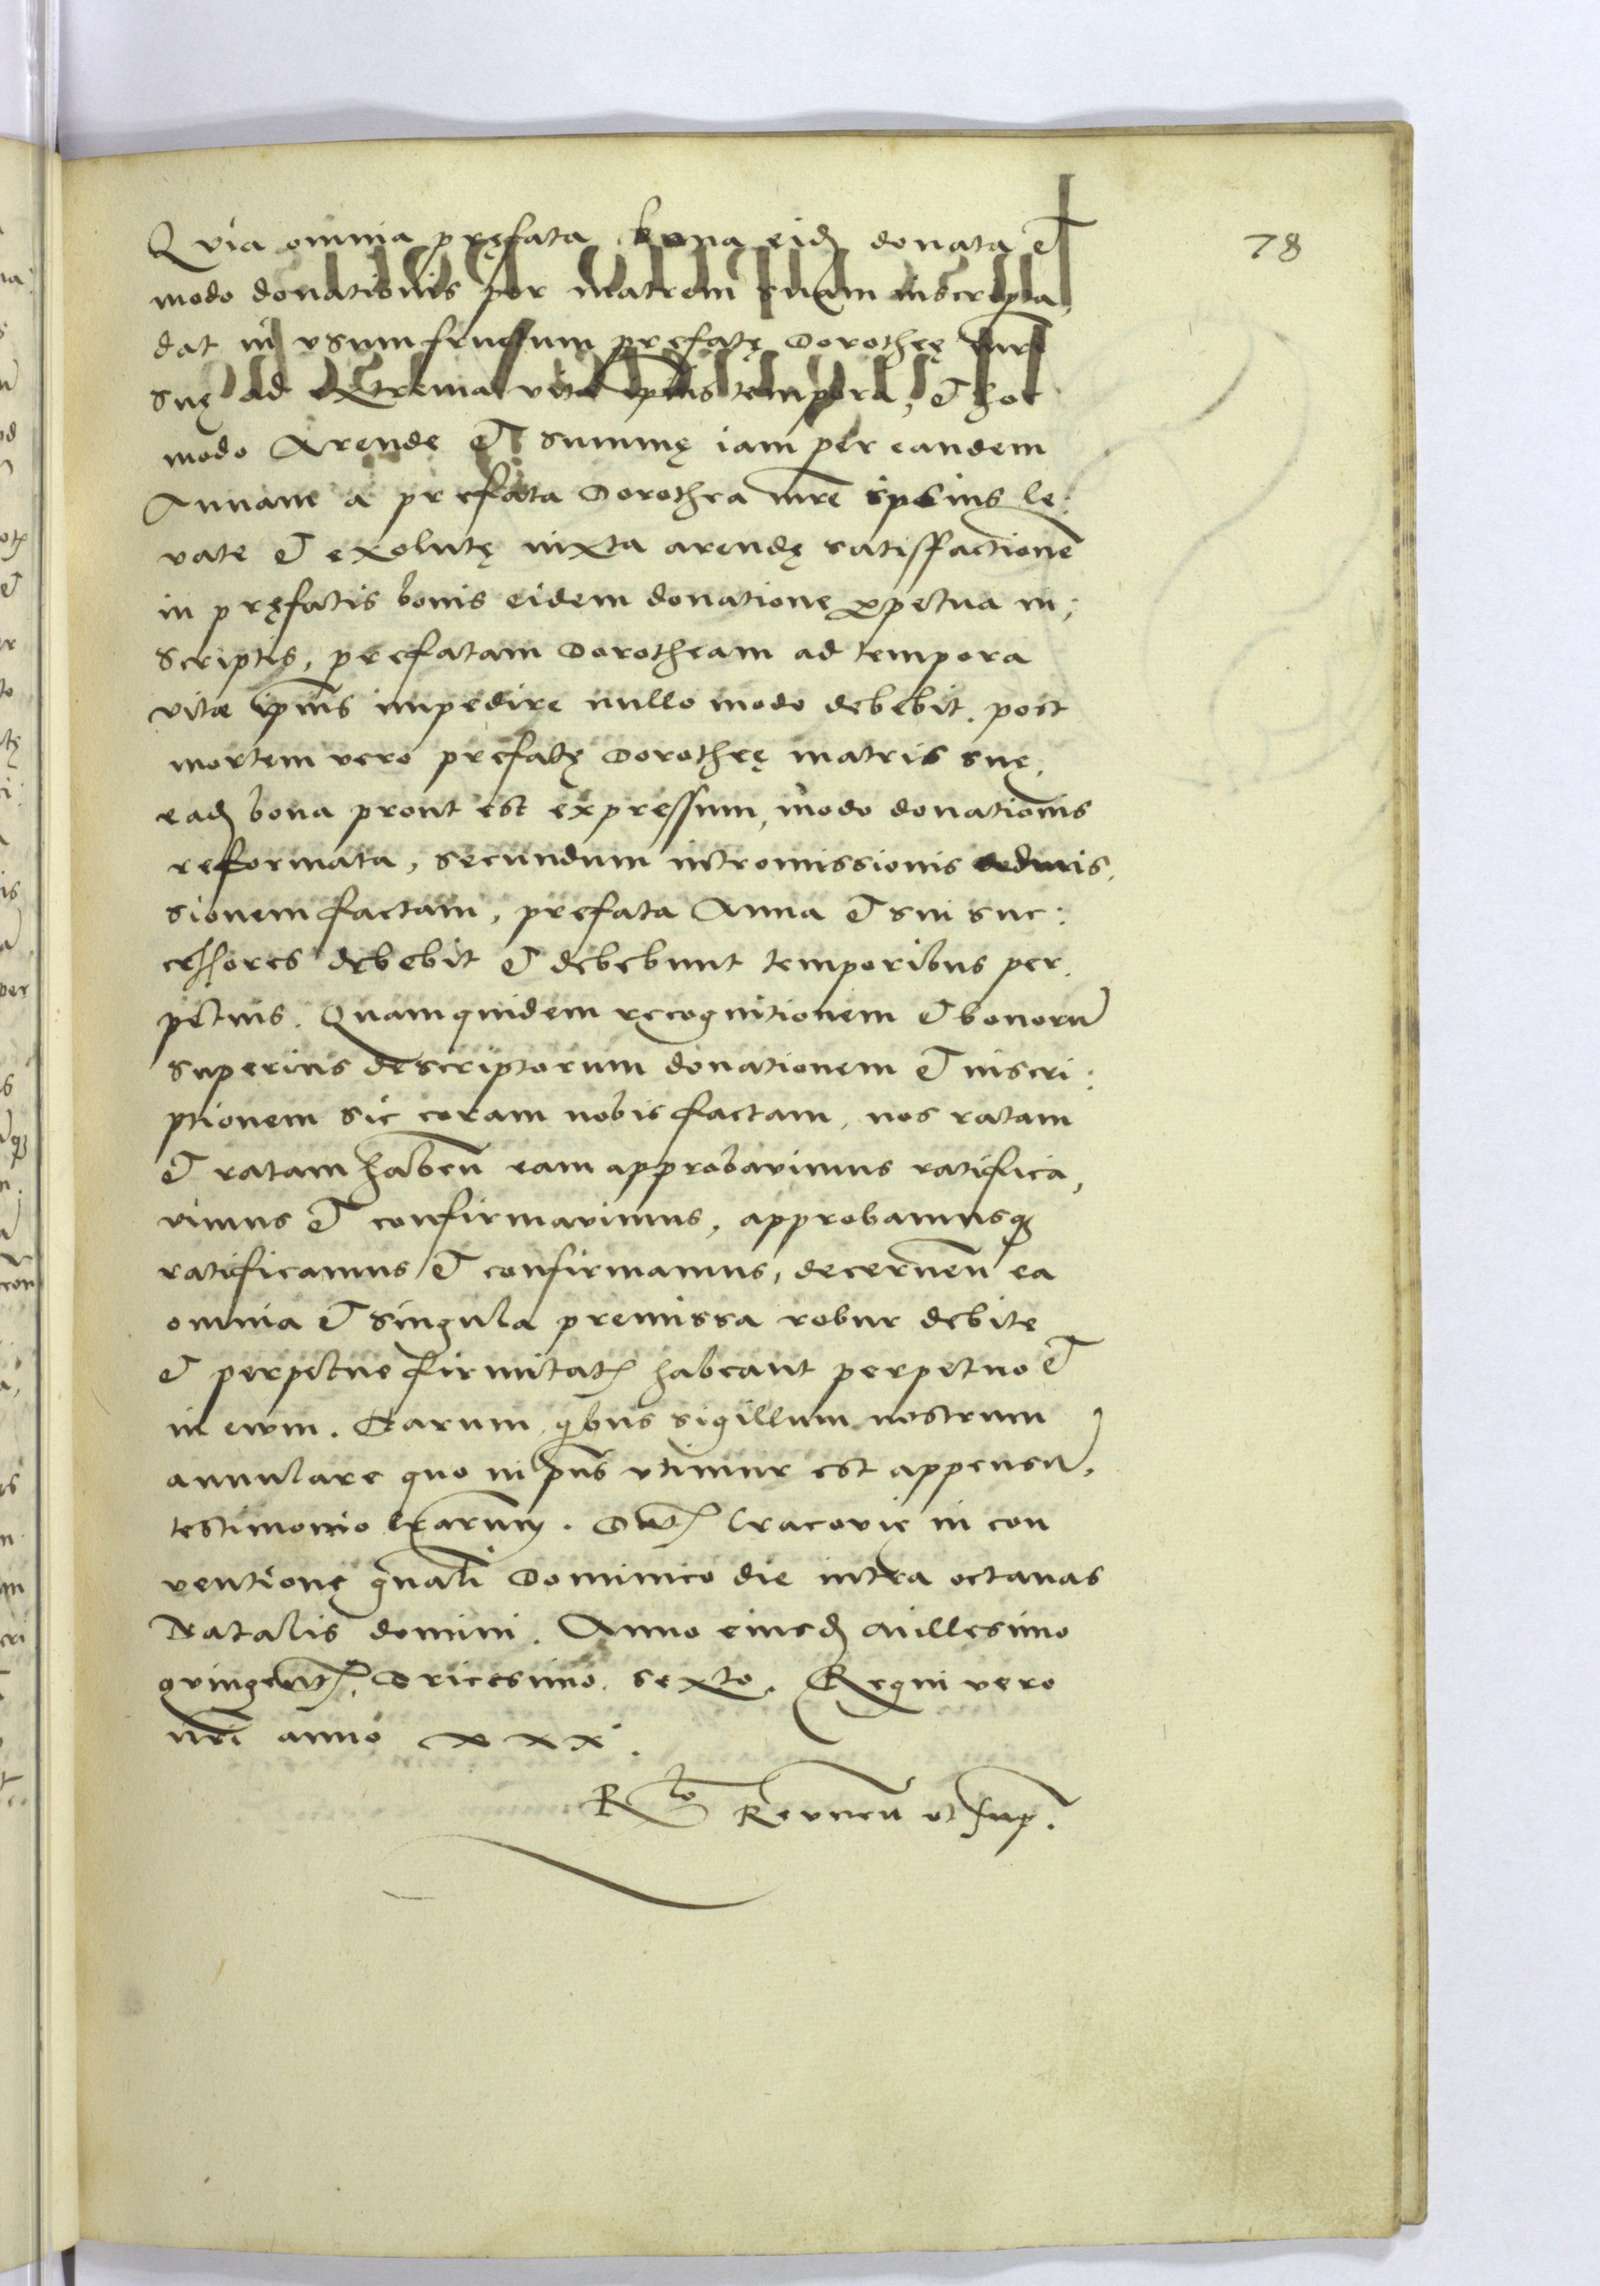 78
Quia omnia pręfata bona eid donata et
modo donationis per matrem suam inscripta,
dat in vsumfructum prefatę Dorotheę mri
suę ad extrema vitę ipius tempora, et hoc
modo Arende et summę iam per eandem
Annam a prefata Dorothea mre ipsius le:
vate et exolutę iuxta arendę satisfactione
in pręfatis bonis eidem donatione perpetua in,
scriptis, prefatam Dorotheam ad tempora
vitæ ipius impedire nullo modo debebit. post
mortem vero prefatę Dorotheę matris suę,
ead bona prout est expressum, modo donationis
reformata, secundum intromissionis admis,
sionem factam, prefata Anna et sui suc:
cessores debebit et debebunt temporibus per,
petuis. Quamquidem recognitionem et bonoru
superius descriptorum donationem et inscri:
ptionem sic coram nobis factam, nos ratam
et ratam haben eam approbavimus ratifica,
vimus et confirmavimus, approbamusq
ratificamus et confirmamus, decernen ea
omnia et singula premissa robur debite
et perpetue firmitatis habeant perpetuo et
in evum. Harum quibus sigillum nostrum
annulare quo in pns vtimur est appensu,
testimonio lrarum. Dat Cracovię in con
ventione gnali Dominico die intra octavas
Natalis domini. Anno eiusd Millesimo
quingent. Tricesimo sexto. Regni vero
nri anno xxx.
Rlo ut sup.